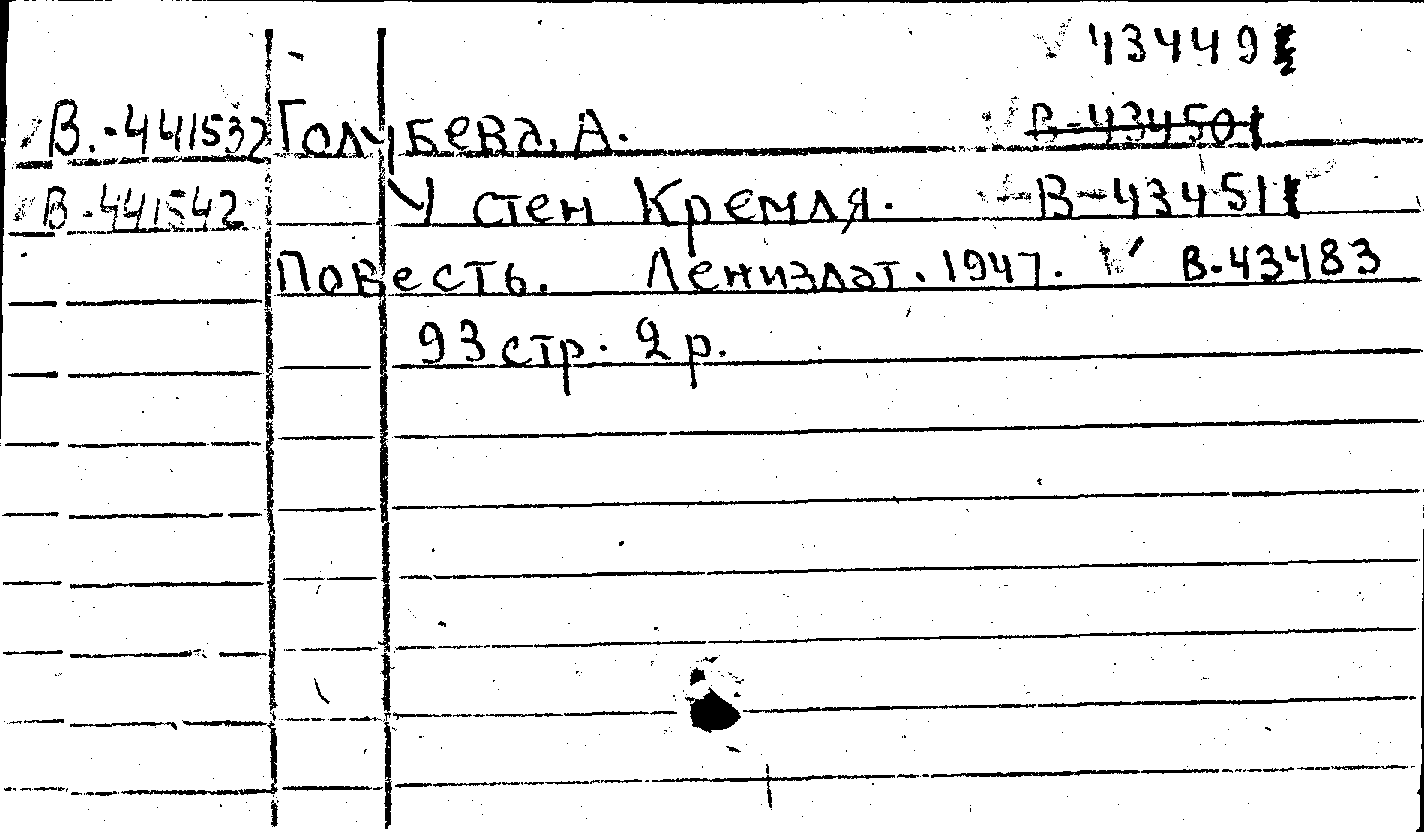 43449
В.-441532 Голубева, А. В-43450
В-441542 У стен Кремля. В-43451
Повесть. Лениздат. 1947. В-43483
93 стр. 2 р.